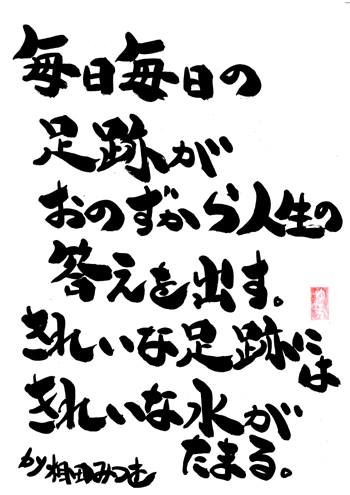 毎日毎日の
足跡が
おのずから人生の
答えを出す。
きれいな足跡には
きれいな水が
たまる。
by 相田みつむ